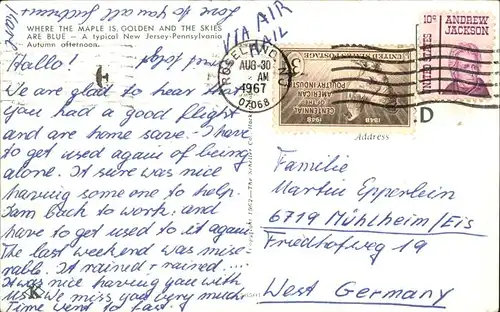 Love to you all
WHERE THE MAPLE IS GOLDEN AND THE SKIES
ARE BLUE - A typical New Jersey-Pennsylvania
Autumn afternoon.
VIA AIR
MAIL
Hallo!
We are glad to hear that
you had a good flight
and are home save. I have
to get used again of being
alone. It sure was nice
having someone to help.
I am back to work, and
have to get used to it again.
The last weekend was mise-
rable. It rained + rained....
It was nice having you with
us. We miss you very much.
Time went to fast.
K
ROSELAND, N.J.
AUG-30
AM
1967
07068
UNITED STATES POSTAGE
3¢
CENTENNIAL
OF THE
AMERICAN
POULTRY INDUSTRY
1848 1948
10¢ ANDREW
JACKSON
UNITED STATES
D
Address
Familie
Martin Epperlein
6719 Mühlheim/Eis
Friedhofweg 19
West Germany